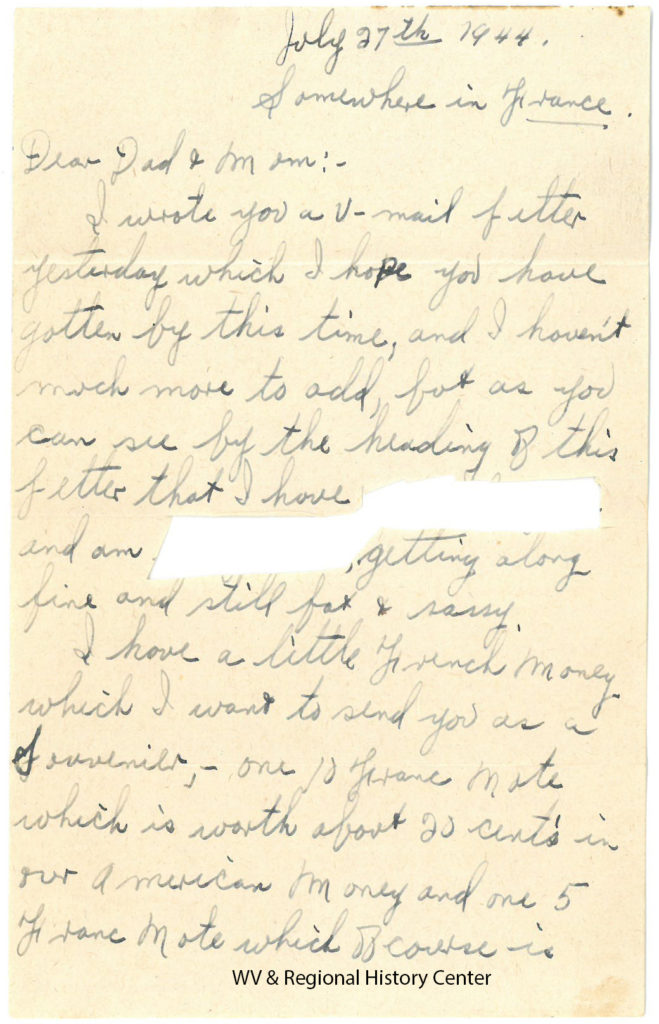 July 27th 1944.
Somewhere in France.
Dear Dad & Mom:-
I wrote you a V-mail letter
yesterday which I hope you have
gotten by this time, and I haven't
much more to add, but as you
can see by the heading of this
letter that I have
and am , getting along
fine and still fat & sassy.
I have a little French Money
which I want to send you as a
Souvenier,- one 10 Franc Note
which is worth about 20 cent's in
our American Money and one 5
Franc Note which of course is
WV & Regional History Center